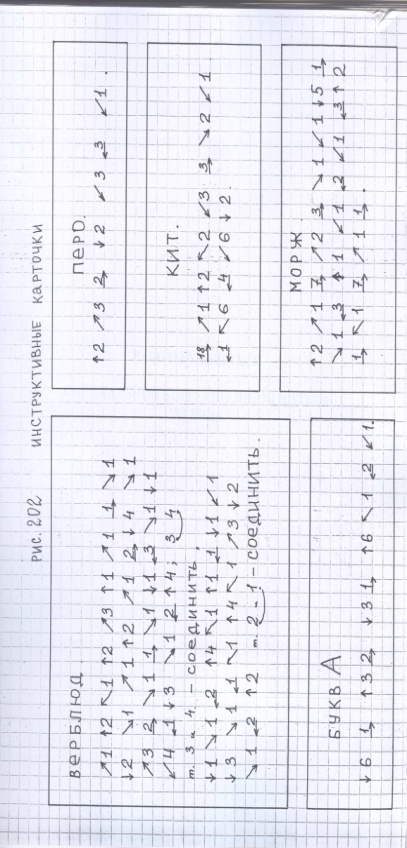 РИС. 202 ИНСТРУКТИВНЫЕ КАРТОЧКИ
ВЕРБЛЮД.
↗1 ↑2 ↖1 ↑2 ↗3 ↑1 ↗1 1→ ↘1
↓2 ↘1 ↗1 ↑2 ↗1 2→ ↓4 ↘1
↗3 2→ ↘1 1→ ↘1 ↓1 3← ↘1 ↓1
↙4 1← ↓3 ↘1 2← ↑4; 3 4
т. 3 и 4 - соединить.
↓1 ↘1 2← ↑4 ↖1 ↑1 1← ↓1 ↙1
↓3 ↘1 1← ↖1 ↑4 ↖1 ↗3 ↓2
↘1 2← ↑2 т. 2-1 - соединить.
БУКВА А
↓6 1→ ↑3 2→ ↓3 1→ ↑6 ↖1 2← ↙1.
ПЕРО.
↑2 ↗3 2→ ↓2 ↙3 3← ↙1.
КИТ.
18→ ↗1 ↑2 ↖2 ↙3 3→ ↘2 ↙1.
1← ↖6 4← ↙6 ↓2.
МОРЖ
↑2 ↗1 7→ ↗2 3→ ↘1 ↙1 ↓5 1→
↘1 3← ↑1 ↙1 2← ↙1 3← ↑2
1→ ↖1 7→ ↗1 1→.